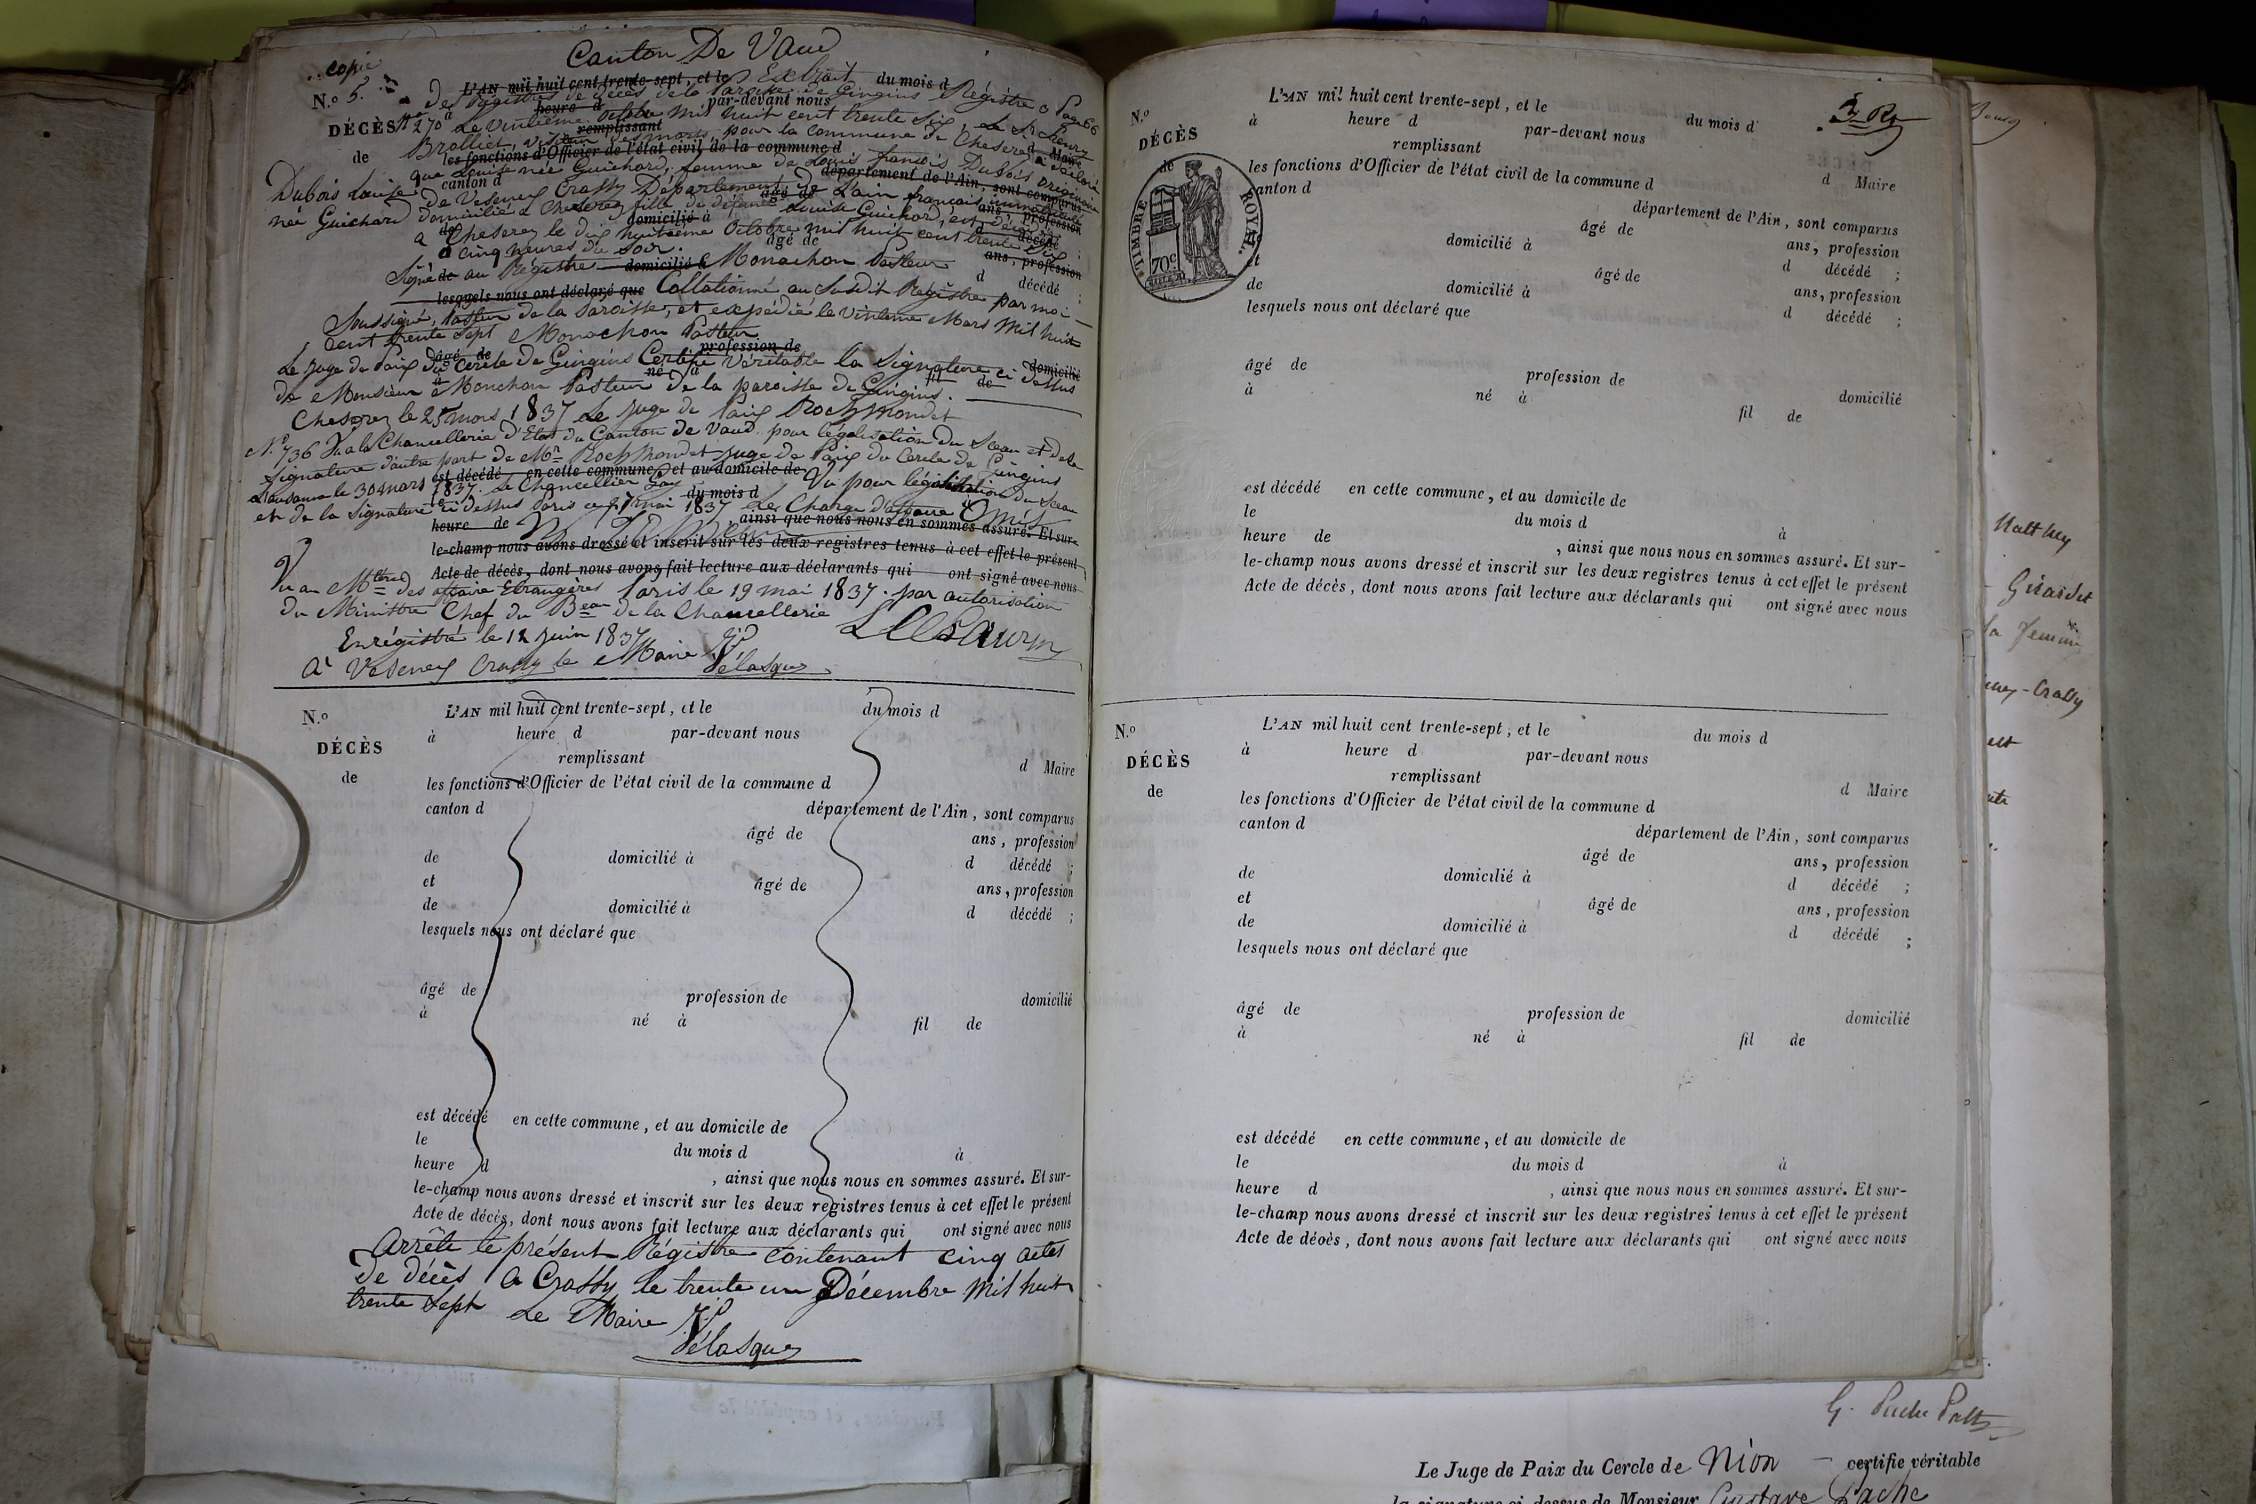 copie
Canton De Vaud
N.o 5.
DÉCÈS
de
Dubois Louise
née Guichard
L'AN mil huit cent trente-sept, et le Extrait du mois d
des Registres de Décès de la Paroisse de Gingins Régistre Page 66
heure d par-devant nous
No 270 Le vintième octobre mil huit cent trente six, Le Sr Henry
remplissant
Brolliet, visiteur des morts, pour la commune de Cheserex a déclaré
les fonctions d'Officier de l'état civil de la commune d d Maire
que Louise née Guichard, femme de Louis françois Dubois originaire
canton d département de l'Ain, sont comparus
de Vesenex Crassy Département de Lain français
âgé de ans, profession
domiciliée à Cheserex fille de défunt Louis Guichard, est décédée
de domicilié à d décédé
à Cheserex le dix huitième Octobre mil huit cent trente six
à cinq heures du soir.
âgé de ans, profession
Signé au Régistre Monachon Pasteur
de domicilié à d décédé ;
lesquels nous ont déclaré que Collationné au susdit Régistre par moi
soussigné, Pasteur de la Paroisse, et expédié le vintième Mars mil huit
cent trente sept Monachon Pasteur
âgé de profession de domicilié
Le Juge de Paix du Cercle de Gingins Certifie Véritable la Signature ci dessus
à né à fil de
de Monsieur Monchon Pasteur de la paroisse de Gingins.
Cheserex le 25 mars 1837 Le Juge de Paix Roch Mondet
No 736 Vu à la Chancellerie d'Etat du Canton de Vaud pour légalisation du Sceau et de la
signature d'autre part de Mr Roch Mondet Juge de Paix du Cercle de Gingins
est décédé en cette commune, et au domicile de
Lausanne le 30 mars 1837. Le Chancellier Gay Vu pour légalisation du Sceau
du mois d
et de la signature ci dessus Paris ce 17 mai 1837 Le Chargé d'affaire
heure de ainsi que nous nous en sommes assuré. Et sur-
le-champ nous avons dressé et inscrit sur les deux registres tenus à cet effet le présent
Acte de décès, dont nous avons fait lecture aux déclarants qui ont signé avec nous
Vu au Mtère des affaire Etrangères Paris le 19 mai 1837. par autorisation
du Ministre Chef du Beau de la Chancellerie
Enrégistré le 12 Juin 1837
A Vesenex Crassy le Maire
Vélasque
N.o
DÉCÈS
de
L'AN mil huit cent trente-sept, et le du mois d
à heure d par-devant nous
remplissant d Maire
les fonctions d'Officier de l'état civil de la commune d
canton d département de l'Ain, sont comparus
âgé de ans, profession
de domicilié à d décédé ;
et âgé de ans, profession
de domicilié à d décédé ;
lesquels nous ont déclaré que
âgé de profession de domicilié
à né à fil de
est décédé en cette commune, et au domicile de
le du mois d à
heure d , ainsi que nous nous en sommes assuré. Et sur-
le-champ nous avons dressé et inscrit sur les deux registres tenus à cet effet le présent
Acte de décès, dont nous avons fait lecture aux déclarants qui ont signé avec nous
Arrêté le présent Régistre contenant cinq actes
de décès A Crassy le trente un Décembre mil huit
trente sept Le Maire
Vélasque
N.o
DÉCÈS
de
TIMBRE ROYAL.
70c
L'AN mil huit cent trente-sept, et le du mois d
à heure d par-devant nous
remplissant d Maire
les fonctions d'Officier de l'état civil de la commune d
canton d département de l'Ain, sont comparus
âgé de ans, profession
domicilié à d décédé ;
et âgé de ans, profession
de domicilié à d décédé ;
lesquels nous ont déclaré que
âgé de profession de domicilié
à né à fil de
est décédé en cette commune, et au domicile de
le du mois d à
heure de , ainsi que nous nous en sommes assuré. Et sur-
le-champ nous avons dressé et inscrit sur les deux registres tenus à cet effet le présent
Acte de décès, dont nous avons fait lecture aux déclarants qui ont signé avec nous
N.o
DÉCÈS
de
L'AN mil huit cent trente-sept, et le du mois d
à heure d par-devant nous
remplissant d Maire
les fonctions d'Officier de l'état civil de la commune d
canton d département de l'Ain, sont comparus
âgé de ans, profession
de domicilié à d décédé ;
et âgé de ans, profession
de domicilié à d décédé ;
lesquels nous ont déclaré que
âgé de profession de domicilié
à né à fil de
est décédé en cette commune, et au domicile de
le du mois d à
heure d , ainsi que nous nous en sommes assuré. Et sur-
le-champ nous avons dressé et inscrit sur les deux registres tenus à cet effet le présent
Acte de décès, dont nous avons fait lecture aux déclarants qui ont signé avec nous
Matthey
Girardet
la femme
Crassy
G. Pache Past
Le Juge de Paix du Cercle de Nion certifie véritable
la signature ci-dessus de Monsieur Gustave Pache